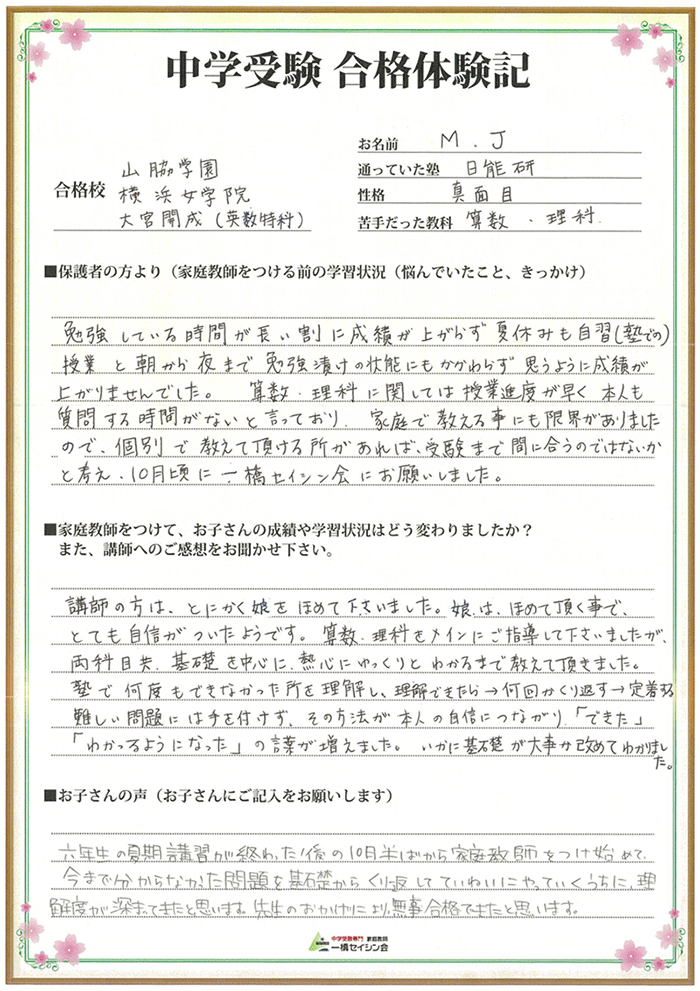 中学受験 合格体験記
お名前 M.J
通っていた塾 日能研
性格 真面目
苦手だった教科 算数・理科
合格校
山脇学園
横浜女学院
大宮開成(英数特科)
■保護者の方より(家庭教師をつける前の学習状況(悩んでいたこと、きっかけ)
勉強している時間が長い割に成績が上がらず夏休みも自習(塾での)
授業と朝から夜まで勉強漬けの状態にもかかわらず思うように成績が
上がりませんでした。算数・理科に関しては授業進度が早く本人も
質問する時間がないと言っており、家庭で教える事にも限界がありました
ので、個別で教えて頂ける所があれば、受験まで間に合うのではないか
と考え、10月頃に一橋セイシン会にお願いしました。
■家庭教師をつけて、お子さんの成績や学習状況はどう変わりましたか?
また、講師へのご感想をお聞かせ下さい。
講師の方は、とにかく娘をほめて下さいました。娘は、ほめて頂く事で、
とても自信がついたようです。算数・理科をメインにご指導して下さいましたが、
両科目共、基礎を中心に、熱心にゆっくりとわかるまで教えて頂きました。
塾で何度もできなかった所を理解し、理解できたら→何回かくり返す→定着する
難しい問題には手を付けず、その方法が本人の自信につながり、「できた」
「わかるようになった」の言葉が増えました。いかに基礎が大事か改めてわかりまし
た。
■お子さんの声(お子さんにご記入をお願いします)
六年生の夏期講習が終わった後の10月半ばから家庭教師をつけ始めて、
今まで分からなかった問題を基礎からくり返してていねいにやっていくうちに、理
解度が深まってきたと思います。先生のおかげにより、無事合格できたと思います。
中学受験専門 家庭教師
一橋セイシン会